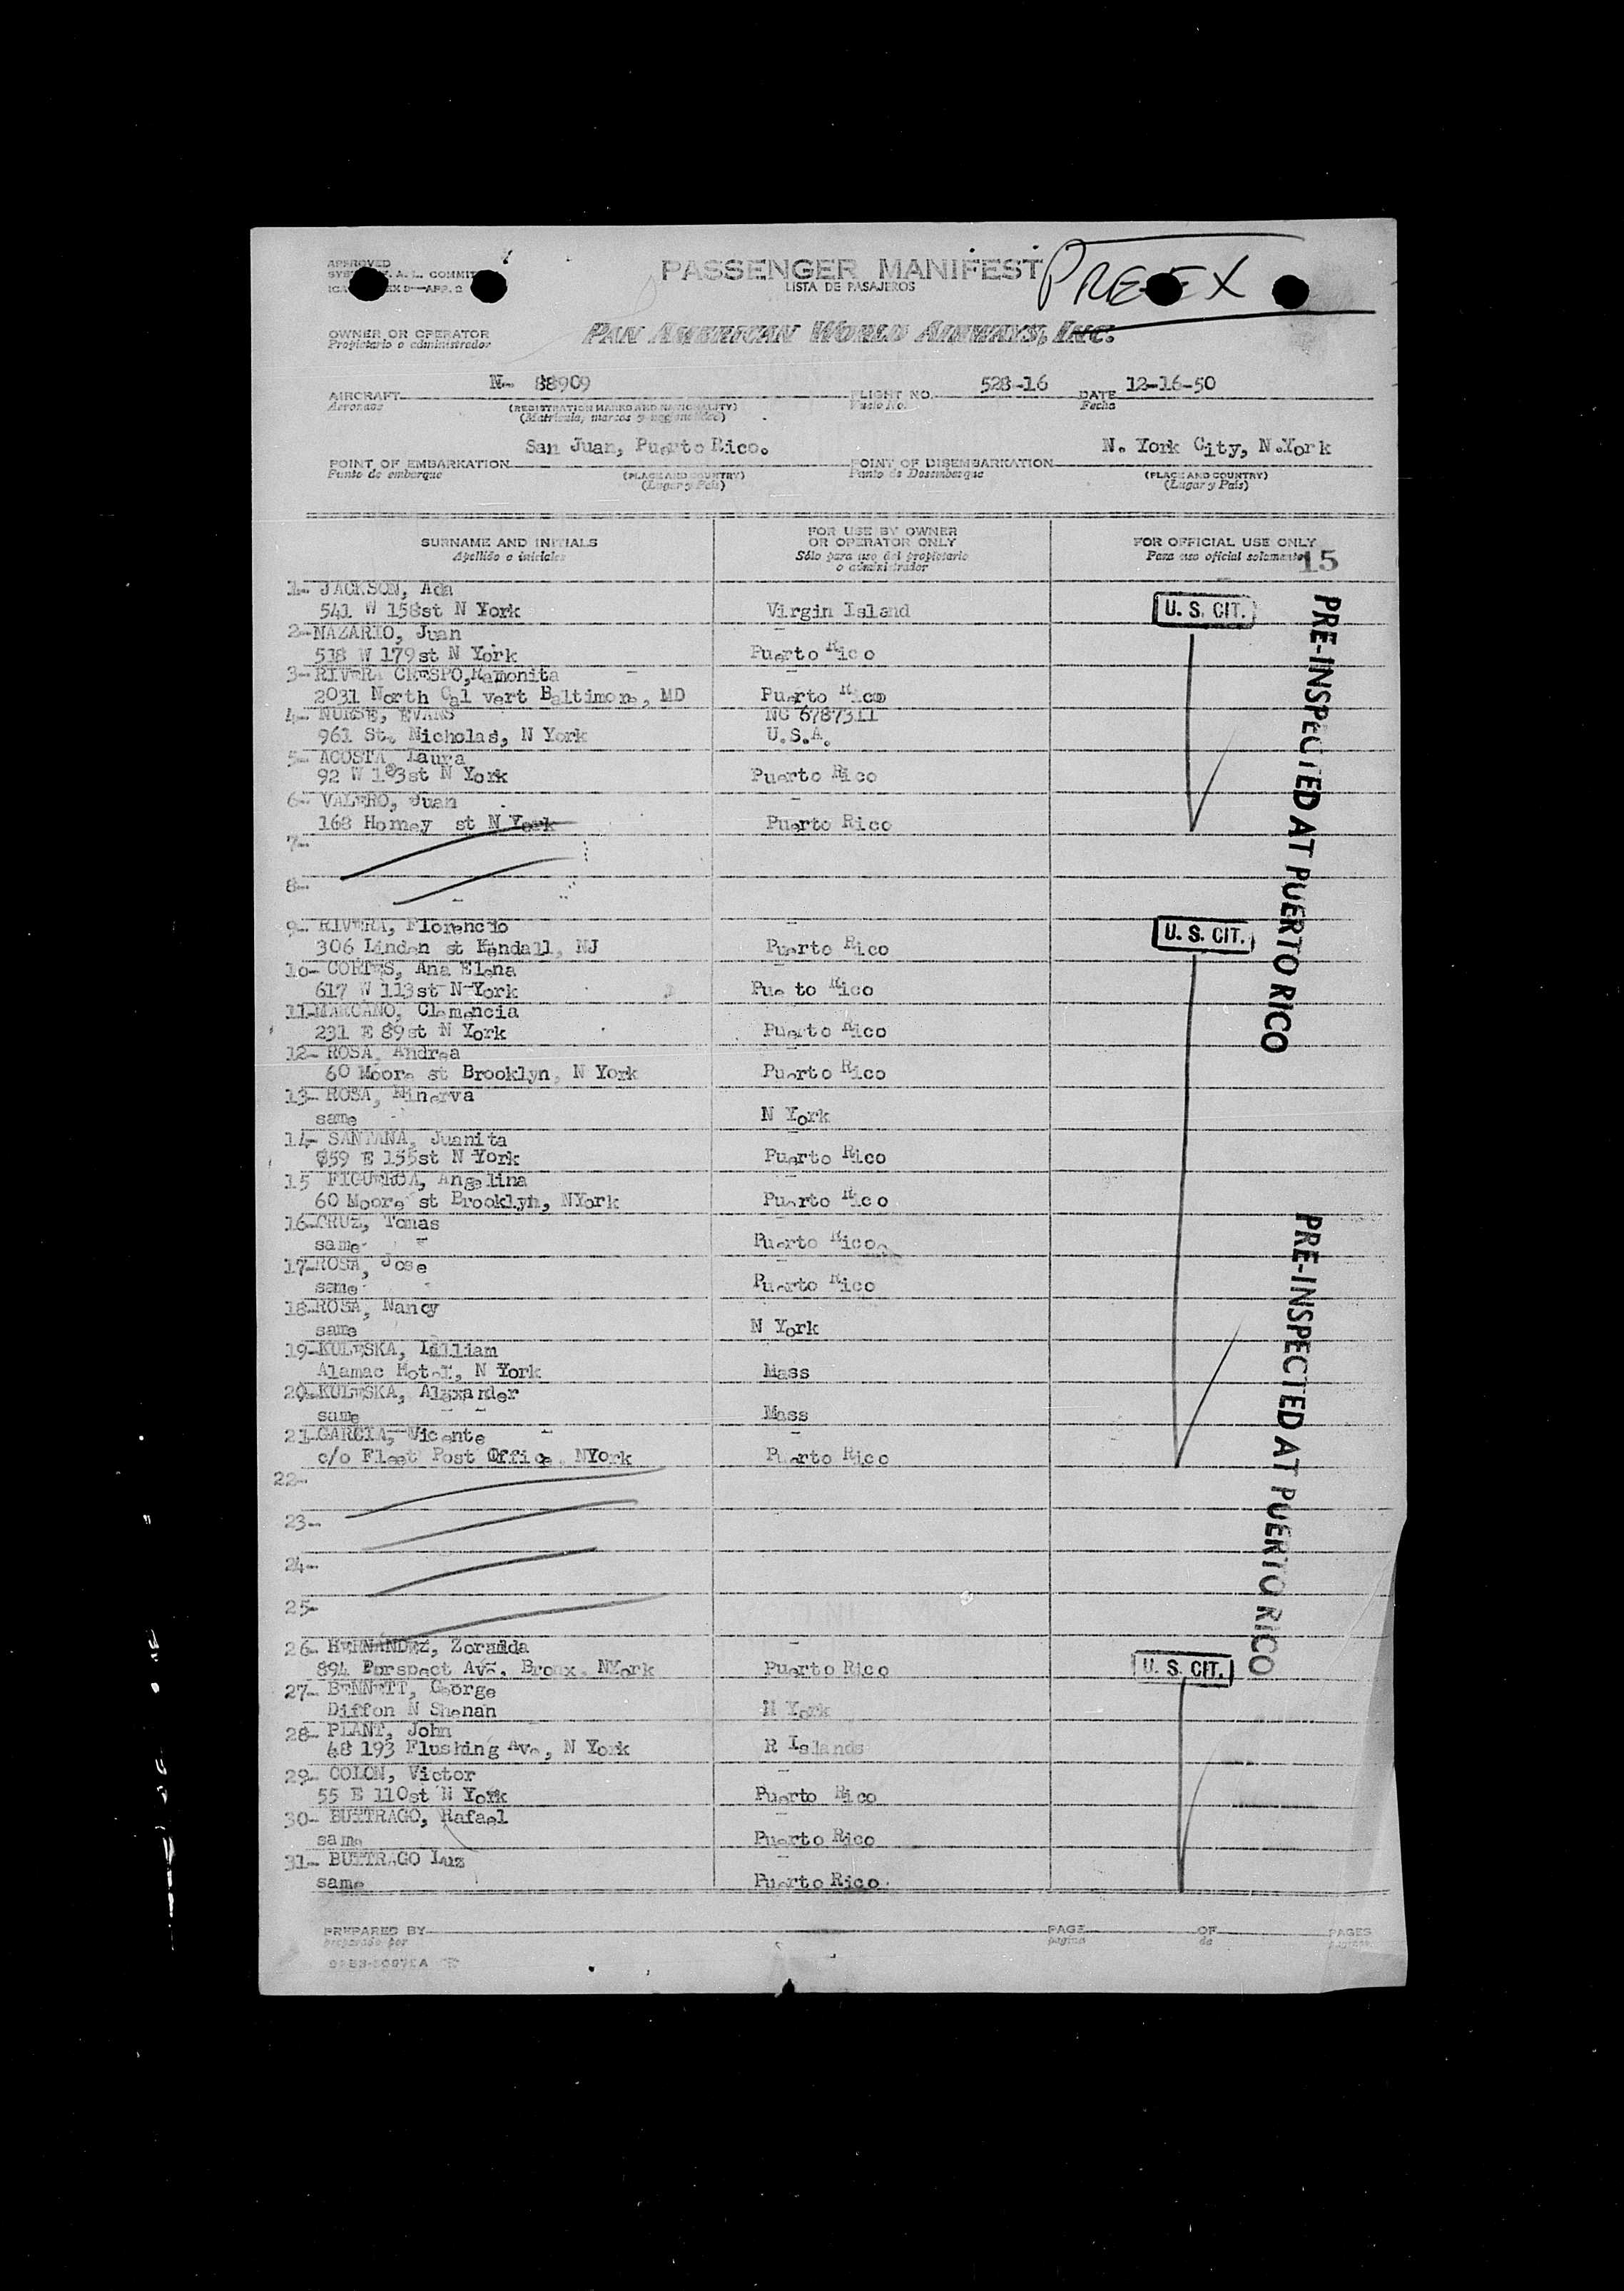 APPROVED
PASSENGER MANIFEST
LISTA DE PASAJEROS
PRE-EX
OWNER OR OPERATOR
Propietario o administrador
PAN AMERICAN WORLD AIRWAYS, INC.
N- 88909 528-16 12-16-50
AIRCRAFT FLIGHT NO. DATE
Aeronave Vuelo No. Fecha
(REGISTRATION MARKS AND NATIONALITY)
(Matricula, marcas y nacionalidad)
San Juan, Puerto Rico. N. York City, N.York
POINT OF EMBARKATION POINT OF DISEMBARKATION
Punto de embarque (PLACE AND COUNTRY) Punto de Desembarque (PLACE AND COUNTRY)
(Lugar y País) (Lugar y País)
SURNAME AND INITIALS
Apellido e iniciales
FOR USE BY OWNER
OR OPERATOR ONLY
Sólo para uso del propietario
o administrador
FOR OFFICIAL USE ONLY
Para uso oficial solamente
15
1- JACKSON, Ada
541 W 158st N York Virgin Island U. S. CIT.
2-NAZARIO, Juan
518 W 179st N York Puerto Rico
3-RIVERA CRESPO,Ramonita
2031 North Cal vert Baltimore, MD Puerto Rico
4- NURSE, EVANS NC 6787311
961 St. Nicholas, N York U.S.A.
5- ACOSTA, Laura
92 W 103st N York Puerto Rico
6- VALERO, Juan
168 Homey st N York Puerto Rico
7-
8-
9- RIVERA, Florencio
306 Linden st Kendall, NJ Puerto Rico U. S. CIT.
10- CORTES, Ana Elena
617 W 113st N York Pue to Rico
11-MARCANO, Clemencia
231 E 89st N York Puerto Rico
12- ROSA, Andrea
60 Moore st Brooklyn, N York Puerto Rico
13- ROSA, Minerva
same N York
14- SANTANA, Juanita
759 E 155st N York Puerto Rico
15 FIGUEROA, Angelina
60 Moore st Brooklyn, NYork Puerto Rico
16-CRUZ, Tomas
same Puerto Rico
17-ROSA, Jose
same Puerto Rico
18-ROSA, Nancy
same N York
19-KULESKA, Lilliam
Alamac Hotel, N York Mass
20-KULESKA, Alexander
same Mass
21-GARCIA, Vicente
c/o Fleet Post Office, NYork Puerto Rico
22-
23-
24-
25-
26- HERNANDEZ, Zoraida
894 Porspect Ave, Bronx, NYork Puerto Rico U. S. CIT.
27- BENNETT, George
Diffon N Shenan N York
28- PLANT, John
48 193 Flushing Ave, N York R Islands
29- COLON, Victor
55 E 110st N York Puerto Rico
30- BUITRAGO, Rafael
same Puerto Rico
31- BUITRAGO Luz
same Puerto Rico
PRE-INSPECTED AT PUERTO RICO
PRE-INSPECTED AT PUERTO RICO
PREPARED BY PAGE OF PAGES
preparado por página de páginas